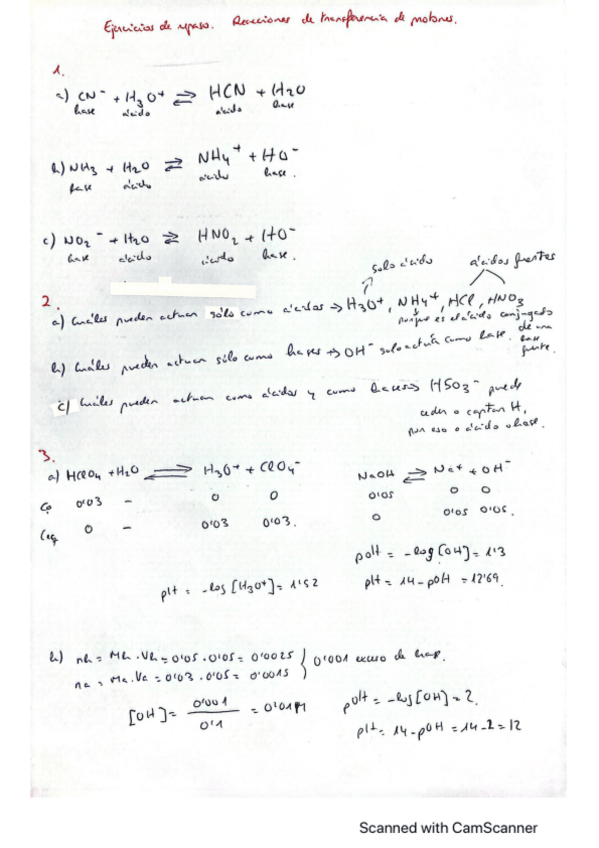 Ejercicios de repaso. Reacciones de transferencia de protones.
1.
a) CN⁻ + H₃O⁺ ⇌ HCN + H₂O
base ácido ácido base
b) NH₃ + H₂O ⇌ NH₄⁺ + HO⁻
base ácido ácido base.
c) NO₂⁻ + H₂O ⇌ HNO₂ + HO⁻
base ácido ácido base.
solo ácido ácidos fuertes
2.
a) Cuáles pueden actuar sólo como ácidos → H₃O⁺, NH₄⁺, HCl, HNO₃
porque es el ácido conjugado de una base fuerte.
b) Cuáles pueden actuar sólo como bases → OH⁻ solo actúa como base.
c) Cuáles pueden actuar como ácidos y como bases → HSO₃⁻ puede
ceder o captar H,
por eso o ácido o base.
3.
a) HClO₄ + H₂O ⇌ H₃O⁺ + ClO₄⁻ NaOH ⇌ Na⁺ + OH⁻
Co 0'03 – 0 0 0'05 0 0
Ceq 0 – 0'03 0'03. 0 0'05 0'05.
pOH = -log[OH] = 1'3
pH = -log[H₃O⁺] = 1'52 pH = 14 - pOH = 12'69.
b) nb = Mb · Vb = 0'05 · 0'05 = 0'0025 } 0'001 exceso de base.
na = Ma · Va = 0'03 · 0'05 = 0'0015
[OH] = 0'001 / 0'1 = 0'01M pOH = -log[OH] = 2.
pH = 14 - pOH = 14 - 2 = 12
Scanned with CamScanner